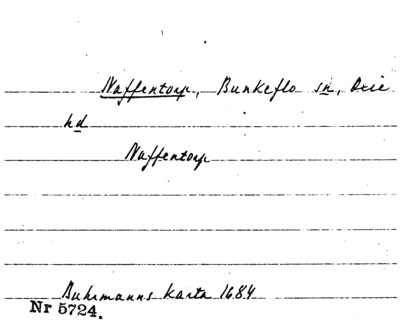 Naffentorp, Bunkeflo sn, Oxie
hd
Naffentorp
Buhrmanns karta 1684
Nr 5724.